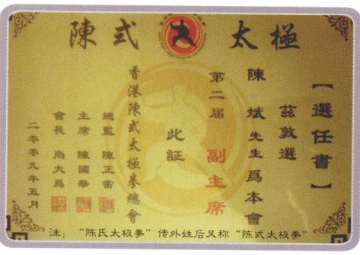 陳式 太極
【選任書】
茲敦選
陳斌先生爲本會
第二届 副主席
此証
香港陳式太極拳總會
總監 陳正雷
主席 陳國華
會長 尚大爲
二〇〇九年五月
注:“陈氏太极拳”传外姓后又称“陈式太极拳”